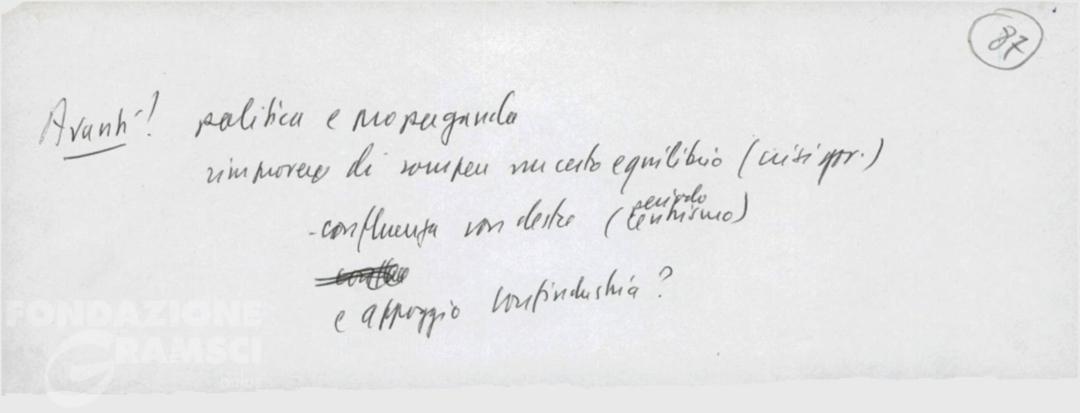 87
Avanti! politica e propaganda
rimprovero di rompere un certo equilibrio (crisi gov.)
- confluenza con destre (periodo centrismo)
e appoggio Confindustria?
FONDAZIONE
GRAMSCI
onlus